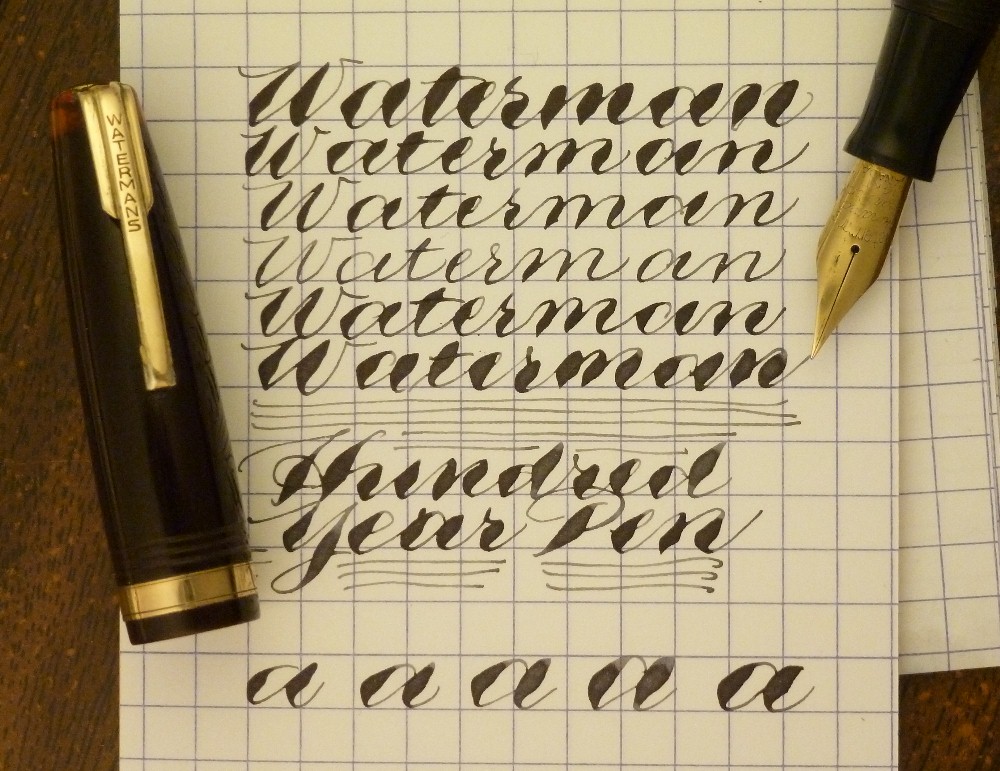 WATERMANS
Waterman
Waterman
Waterman
Waterman
Waterman
Waterman
Hundred
Year Pen
a a a a a